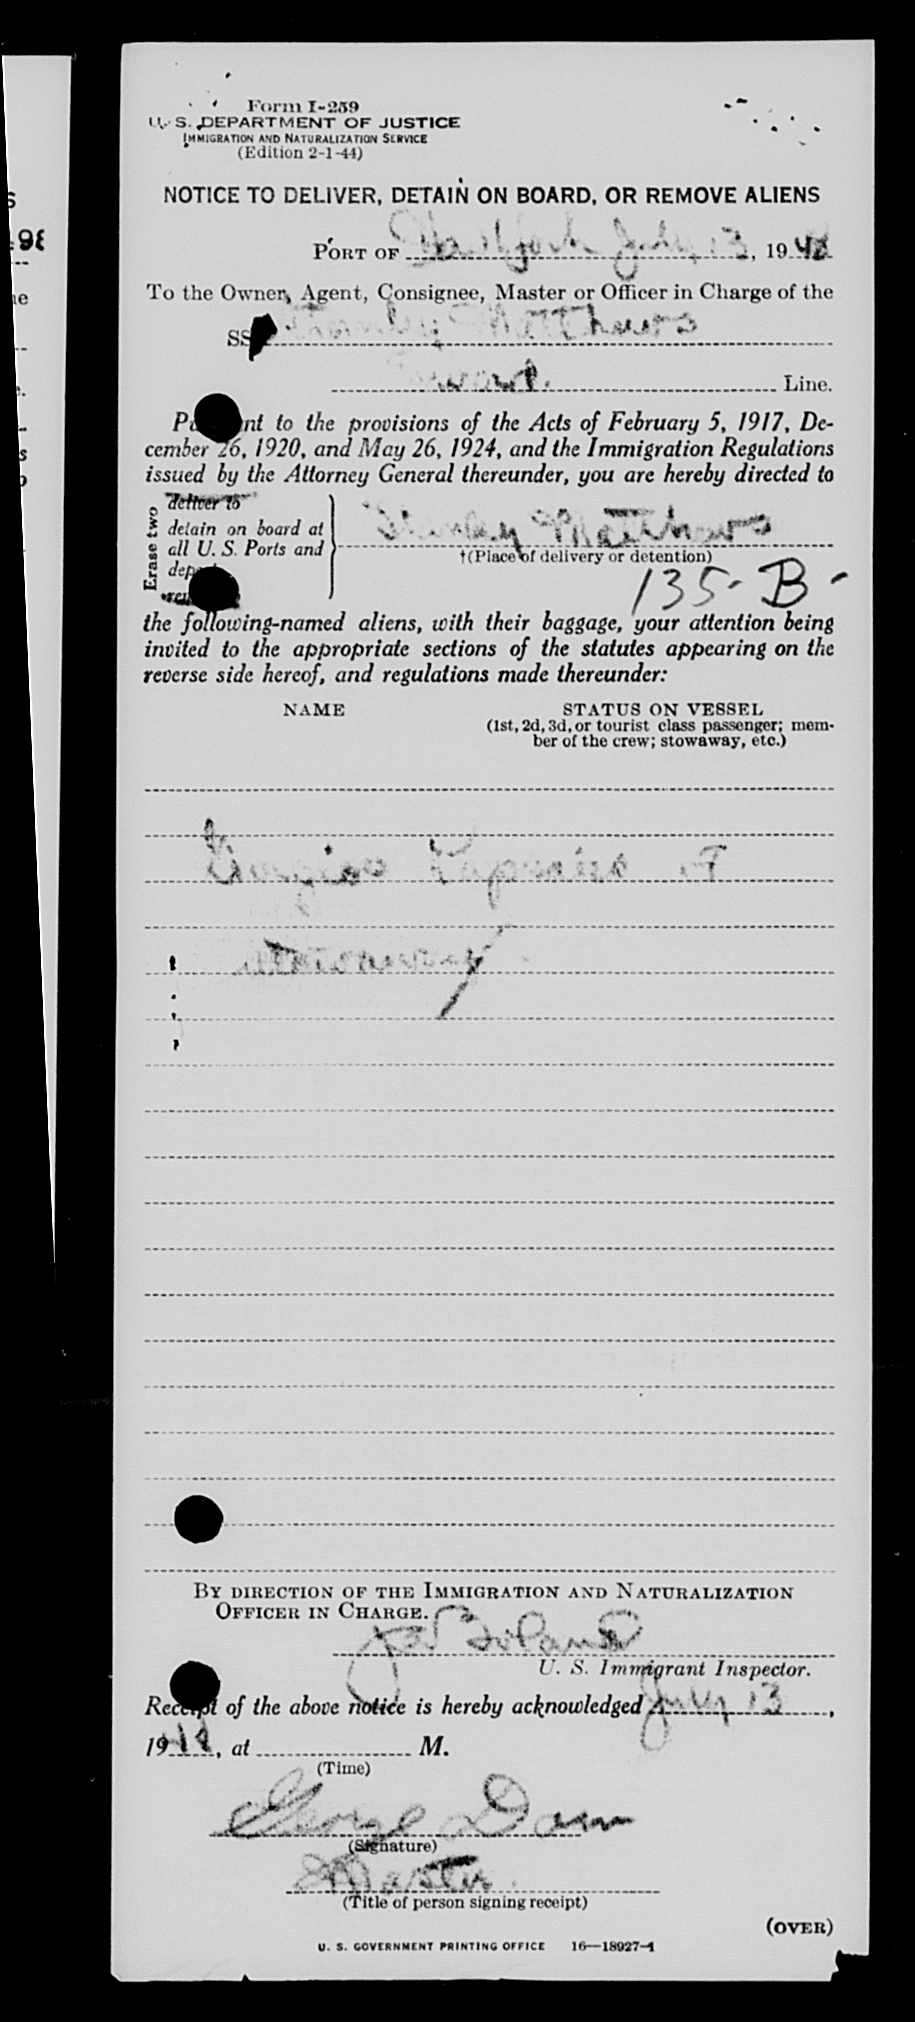 Form I-259
U. S. DEPARTMENT OF JUSTICE
IMMIGRATION AND NATURALIZATION SERVICE
(Edition 2-1-44)
NOTICE TO DELIVER, DETAIN ON BOARD, OR REMOVE ALIENS
PORT OF July 13, 1948
To the Owner, Agent, Consignee, Master or Officer in Charge of the
SS Stanley Matthews
Line.
Pu nt to the provisions of the Acts of February 5, 1917, De-
cember 26, 1920, and May 26, 1924, and the Immigration Regulations
issued by the Attorney General thereunder, you are hereby directed to
Erase two
deliver to
detain on board at
all U. S. Ports and
Stanley Matthews
†(Place of delivery or detention)
135-B-
the following-named aliens, with their baggage, your attention being
invited to the appropriate sections of the statutes appearing on the
reverse side hereof, and regulations made thereunder:
NAME
STATUS ON VESSEL
(1st, 2d, 3d, or tourist class passenger; mem-
ber of the crew; stowaway, etc.)
Stowaway
BY DIRECTION OF THE IMMIGRATION AND NATURALIZATION
OFFICER IN CHARGE.
U. S. Immigrant Inspector.
Receipt of the above notice is hereby acknowledged July 13,
19 , at M.
(Time)
George
(Signature)
Master
(Title of person signing receipt)
(OVER)
U. S. GOVERNMENT PRINTING OFFICE 16—18927-1
98